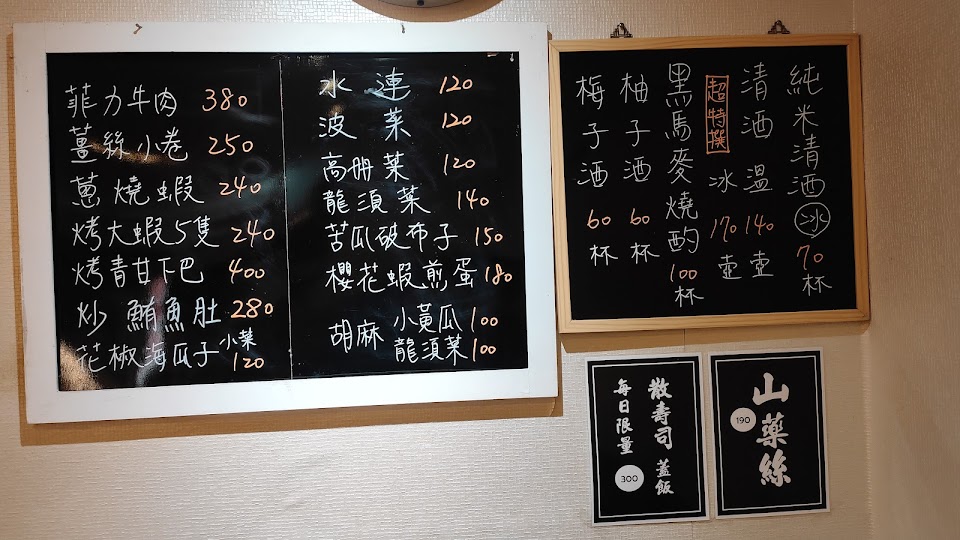 菲力牛肉 380
薑絲小卷 250
蔥燒蝦 240
烤大蝦5隻 240
烤青甘下巴 400
炒鮪魚肚 280
花椒海瓜子 小菜 120
水蓮 120
波菜 120
高册菜 120
龍須菜 140
苦瓜破布子 150
櫻花蝦煎蛋 180
胡麻 小黃瓜 100
龍須菜 100
純米清酒 冰 70杯
清酒 溫 140壺
超特撰 冰 170壺
黑馬麥燒酌 100杯
柚子酒 60杯
梅子酒 60杯
散壽司 蓋飯
每日限量 300
山藥絲
190